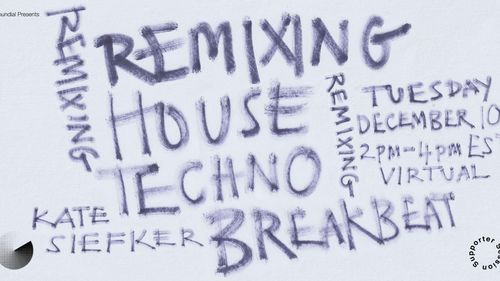 Presents
REMIXING
REMIXING
HOUSE
TECHNO
BREAKBEAT
REMIXING
TUESDAY
DECEMBER 10
2PM-4PM ES
VIRTUAL
KATE
SIEFKER
Supporter